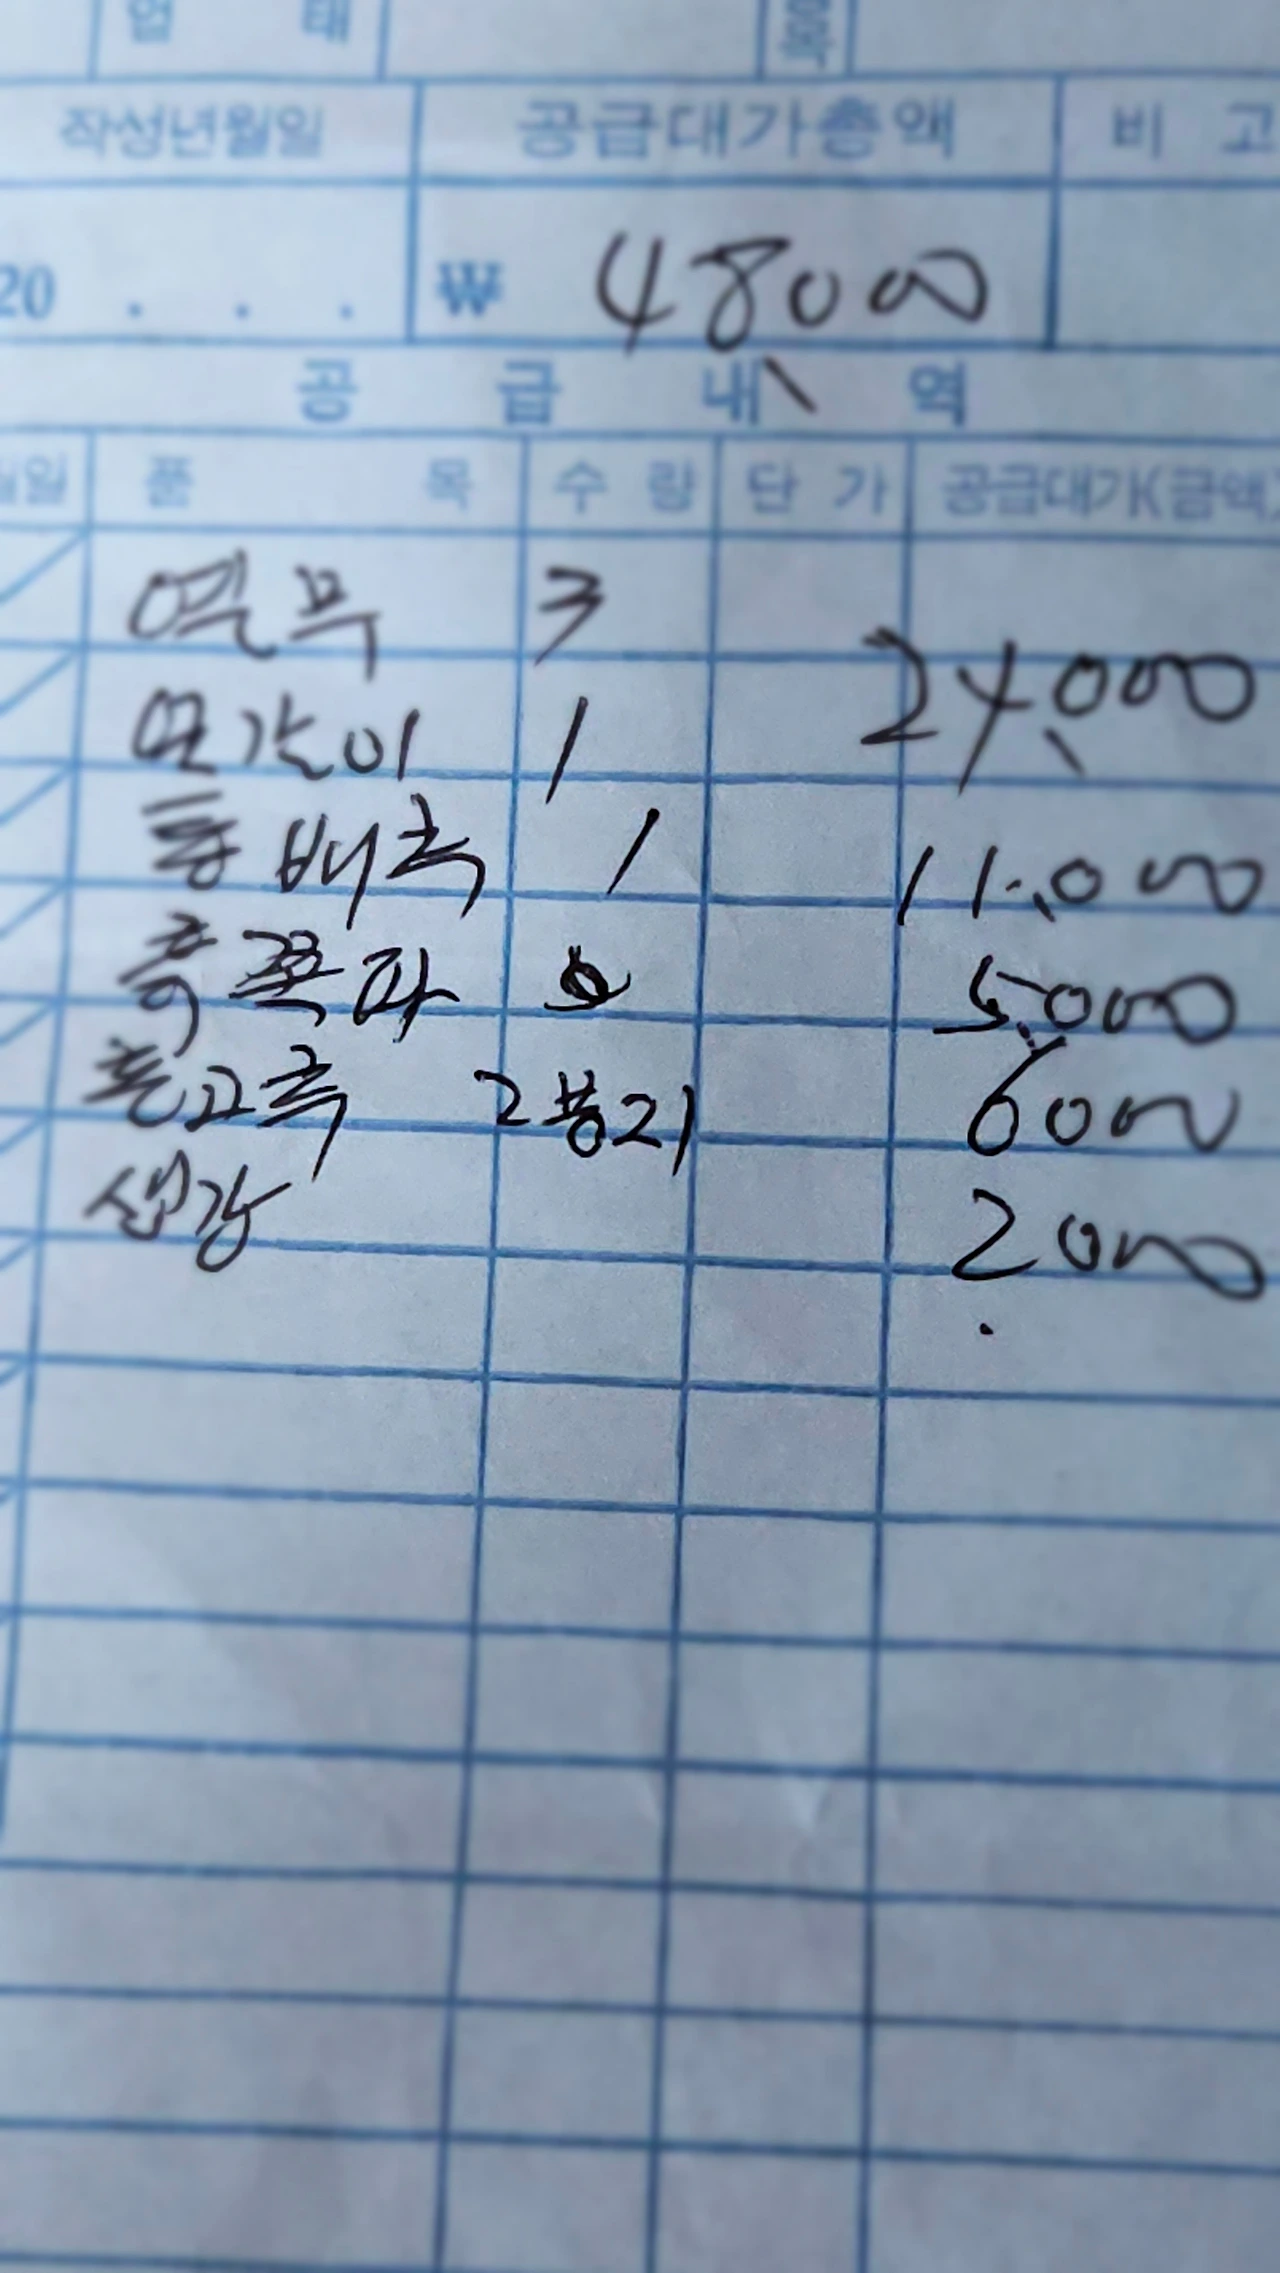 업 태
작성년월일 공급대가총액 비 고
20 . . . ₩ 48000
공 급 내 역
월일 품 목 수 량 단 가 공급대가(금액)
열무 3
얼갈이 1 24,000
통배추 1 11,000
쪽파 5,000
풋고추 2봉지 6000
생강 2000